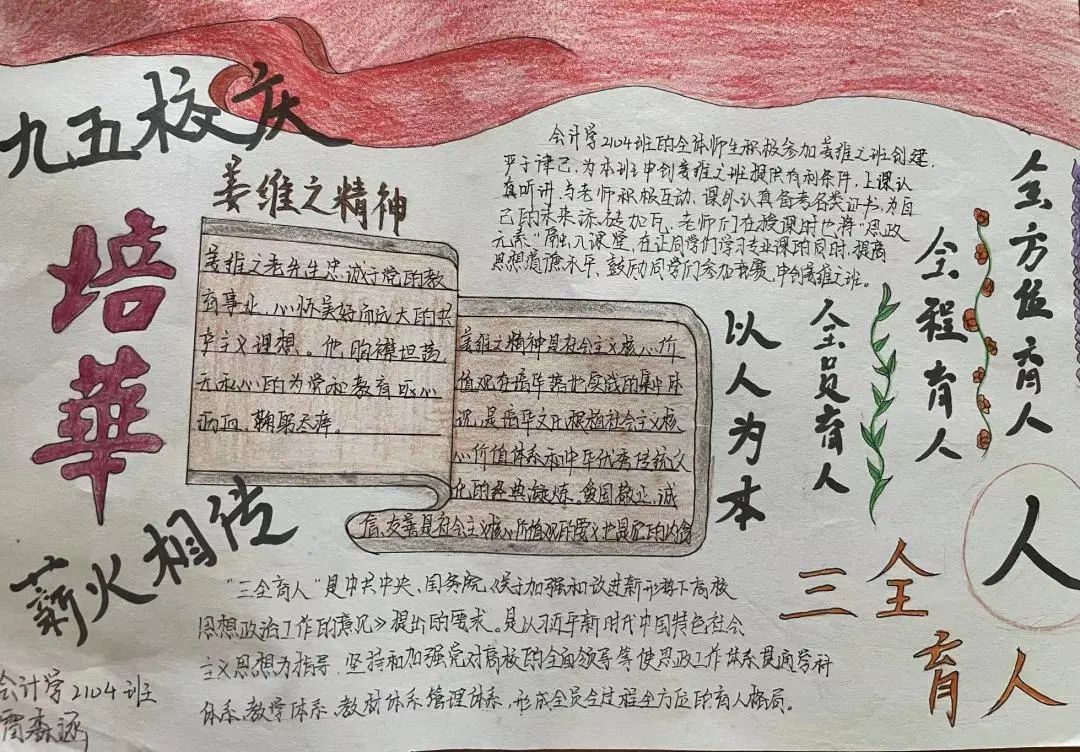 九五校庆
培華
薪火相传
姜维之精神
姜维之老先生忠诚于党的教
育事业，心怀美好而远大的共
产主义理想。他胸襟坦荡，
无私心的为党和教育呕心
沥血，鞠躬尽瘁。
姜维之精神是社会主义核心价
值观在培华落地实践的集中体
现，是培华文化根植社会主义核
心价值体系和中华优秀传统文
化的经典凝炼，爱国敬业，诚
信，友善是社会主义核心价值观的要义也是它的内涵
会计学2104班的全体师生积极参加姜维之班创建，
严于律己，为本班申创姜维之班提供有利条件，上课认
真听讲，与老师积极互动，课外认真备考各类证书，为自
己的未来添砖加瓦。老师们在授课时也将“思政
元素”融入课堂，在让同学们学习专业课的同时，提高
思想道德水平，鼓励同学们参加竞赛，申创姜维之班。
以人为本
全员育人
全程育人
全方位育人
人
三全育人
“三全育人”是中共中央、国务院《关于加强和改进新形势下高校
思想政治工作的意见》提出的要求。是以习近平新时代中国特色社会
主义思想为指导，坚持和加强党对高校的全面领导等，使思政工作体系贯通学科
体系、教学体系、教材体系、管理体系，形成全员全过程全方位的育人格局。
会计学2104班